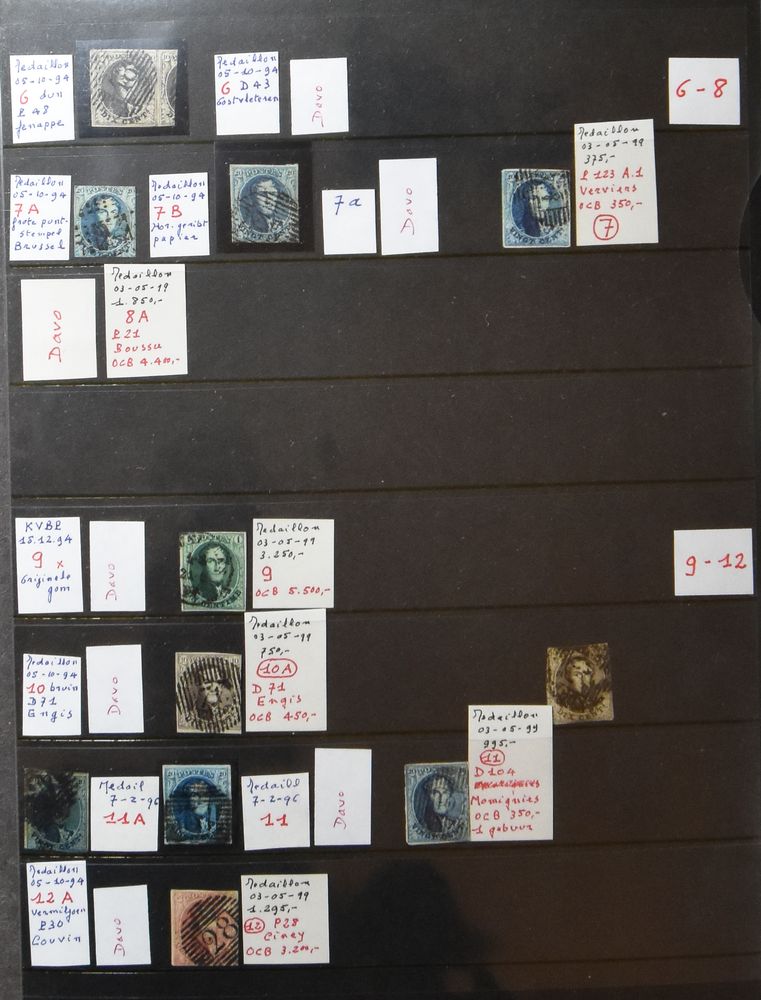 Medaillon
05-10-94
6 dun
P 48
Jenappe
Medaillon
05-10-94
6 D 43
Oostvleteren
Davo
6-8
Medaillon
05-10-94
7A
grote punt-
stempel
Brussel
Medaillon
05-10-94
7B
Hor. geribt
papier
7a
Davo
Medaillon
03-05-99
375,-
P 123 A.1
Verviers
OCB 350,-
7
Davo
Medaillon
03-05-99
1.850,-
8A
P21
Boussu
OCB 4.400,-
KVBP
15.12.94
9 x
Originele
gom
Davo
Medaillon
03-05-99
3.250,-
9
OCB 5.500,-
9-12
Medaillon
05-10-94
10 bruin
D71
Engis
Davo
Medaillon
03-05-99
750,-
10A
D 71
Engis
OCB 450,-
Medail
7-2-96
11A
Medaill
7-2-96
11
Davo
Medaillon
03-05-99
995,-
11
D 104
Momignies
OCB 350,-
1 gebuur
Medaillon
05-10-94
12 A
Vermiljoen
P30
Couvin
Davo
28
Medaillon
03-05-99
1.295,-
12 P28
Ciney
OCB 3.200,-